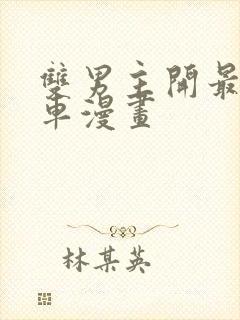 雙男主開最
車漫畫
林某英